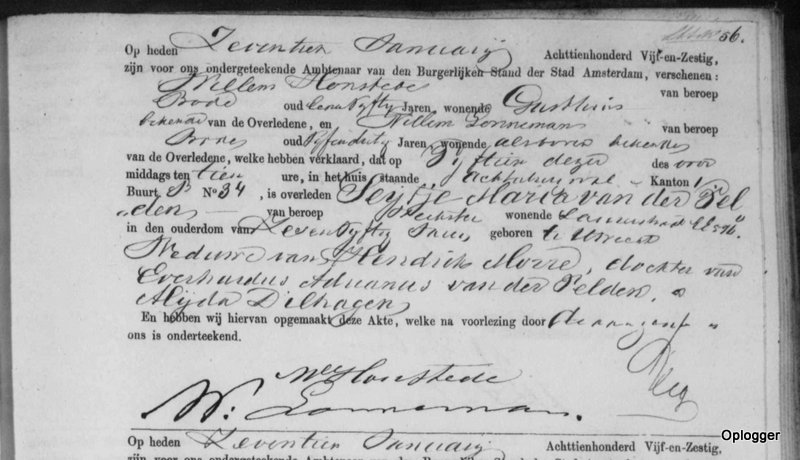 56.
Op heden Zeventien Januarij Achttienhonderd Vijf-en-Zestig,
zijn voor ons ondergeteekende Ambtenaar van den Burgerlijken Stand der Stad Amsterdam, verschenen:
Willem Honstede van beroep
Bode oud Jaren, wonende Gasthuis
bekende van de Overledene, en Willem Lonneman van beroep
Bode oud Jaren wonende alsboven bekende
van de Overledene, welke hebben verklaard, dat op Vijftien dezer des voor
middags ten tien ure, in het huis, staande Achterburgwal Kanton 1
Buurt N° 34, is overleden Seijtje Maria van der Vel
den van beroep wonende
in den ouderdom van Zeven Vijftig Jaren geboren te Utrecht
Weduwe van Hendrik Morre, dochter van
Everhardus Adrianus van der Velden,
Alijda Dilhagen
En hebben wij hiervan opgemaakt deze Akte, welke na voorlezing door de aangevers
ons is onderteekend.
Wm Honstede
W: Lonneman.
Oplogger
Op heden Zeventien Januarij Achttienhonderd Vijf-en-Zestig,